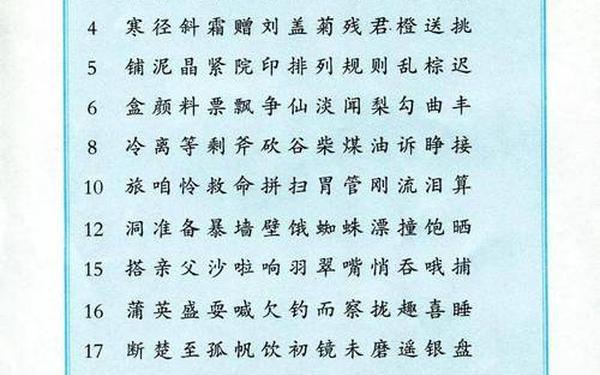 4 寒径斜霜赠刘盖菊残君橙送挑
5 铺泥晶紧院印排列规则乱棕迟
6 盒颜料票飘争仙淡闻梨勾曲丰
8 冷离等剩斧砍谷柴煤油诉睁接
10 旅咱怜救命拼扫胃管刚流泪算
12 洞准备暴墙壁饿蜘蛛漂撞饱晒
15 搭亲父沙啦响羽翠嘴悄吞哦捕
16 蒲英盛耍喊欠钓而察拢趣喜睡
17 断楚至孤帆饮初镜未磨遥银盘